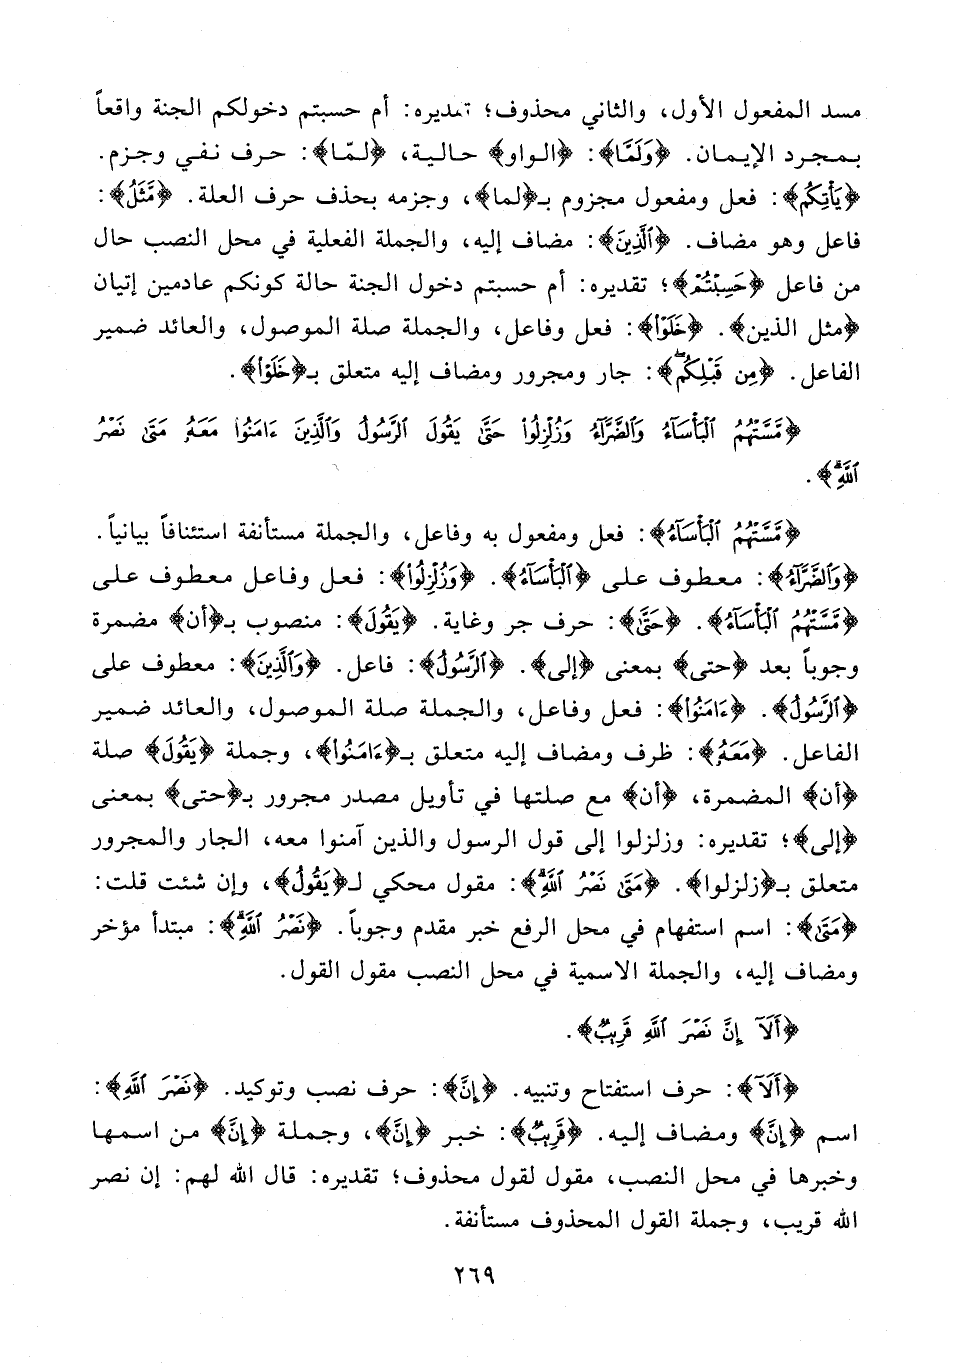 مسد المفعول الأول، والثاني محذوف؛ تقديره: أم حسبتم دخولكم الجنة واقعاً
بمجرد الإيمان. ﴿وَلَمَّا﴾: ﴿الواو﴾ حالية، ﴿لمّا﴾: حرف نفي وجزم.
﴿يَأْتِكُم﴾: فعل ومفعول مجزوم بـ﴿لما﴾، وجزمه بحذف حرف العلة. ﴿مَّثَلُ﴾:
فاعل وهو مضاف. ﴿ٱلَّذِينَ﴾: مضاف إليه، والجملة الفعلية في محل النصب حال
من فاعل ﴿حَسِبْتُمْ﴾؛ تقديره: أم حسبتم دخول الجنة حالة كونكم عادمين إتيان
﴿مثل الذين﴾. ﴿خَلَوْا۟﴾: فعل وفاعل، والجملة صلة الموصول، والعائد ضمير
الفاعل. ﴿مِن قَبْلِكُم ۖ﴾: جار ومجرور ومضاف إليه متعلق بـ﴿خَلَوْا۟﴾.
﴿مَّسَّتْهُمُ ٱلْبَأْسَآءُ وَٱلضَّرَّآءُ وَزُلْزِلُوا۟ حَتَّىٰ يَقُولَ ٱلرَّسُولُ وَٱلَّذِينَ ءَامَنُوا۟ مَعَهُۥ مَتَىٰ نَصْرُ
ٱللَّهِ ۗ﴾.
﴿مَّسَّتْهُمُ ٱلْبَأْسَآءُ﴾: فعل ومفعول به وفاعل، والجملة مستأنفة استئنافاً بيانياً.
﴿وَٱلضَّرَّآءُ﴾: معطوف على ﴿ٱلْبَأْسَآءُ﴾. ﴿وَزُلْزِلُوا۟﴾: فعل وفاعل معطوف على
﴿مَّسَّتْهُمُ ٱلْبَأْسَآءُ﴾. ﴿حَتَّىٰ﴾: حرف جر وغاية. ﴿يَقُولَ﴾: منصوب بـ﴿أن﴾ مضمرة
وجوباً بعد ﴿حتى﴾ بمعنى ﴿إلى﴾. ﴿ٱلرَّسُولُ﴾: فاعل. ﴿وَٱلَّذِينَ﴾: معطوف على
﴿ٱلرَّسُولُ﴾. ﴿ءَامَنُوا۟﴾: فعل وفاعل، والجملة صلة الموصول، والعائد ضمير
الفاعل. ﴿مَعَهُۥ﴾: ظرف ومضاف إليه متعلق بـ﴿ءَامَنُوا۟﴾، وجملة ﴿يَقُولَ﴾ صلة
﴿أن﴾ المضمرة، ﴿أن﴾ مع صلتها في تأويل مصدر مجرور بـ﴿حتى﴾ بمعنى
﴿إلى﴾؛ تقديره: وزلزلوا إلى قول الرسول والذين آمنوا معه، الجار والمجرور
متعلق بـ﴿زلزلوا﴾. ﴿مَتَىٰ نَصْرُ ٱللَّهِ ۗ﴾: مقول محكي لـ﴿يَقُولُ﴾، وإن شئت قلت:
﴿مَتَىٰ﴾: اسم استفهام في محل الرفع خبر مقدم وجوباً. ﴿نَصْرُ ٱللَّهِ ۗ﴾: مبتدأ مؤخر
ومضاف إليه، والجملة الاسمية في محل النصب مقول القول.
﴿أَلَآ إِنَّ نَصْرَ ٱللَّهِ قَرِيبٌ﴾.
﴿أَلَآ﴾: حرف استفتاح وتنبيه. ﴿إِنَّ﴾: حرف نصب وتوكيد. ﴿نَصْرَ ٱللَّهِ﴾:
اسم ﴿إِنَّ﴾ ومضاف إليه. ﴿قَرِيبٌ﴾: خبر ﴿إِنَّ﴾، وجملة ﴿إِنَّ﴾ من اسمها
وخبرها في محل النصب، مقول لقول محذوف؛ تقديره: قال الله لهم: إن نصر
الله قريب، وجملة القول المحذوف مستأنفة.
٢٦٩